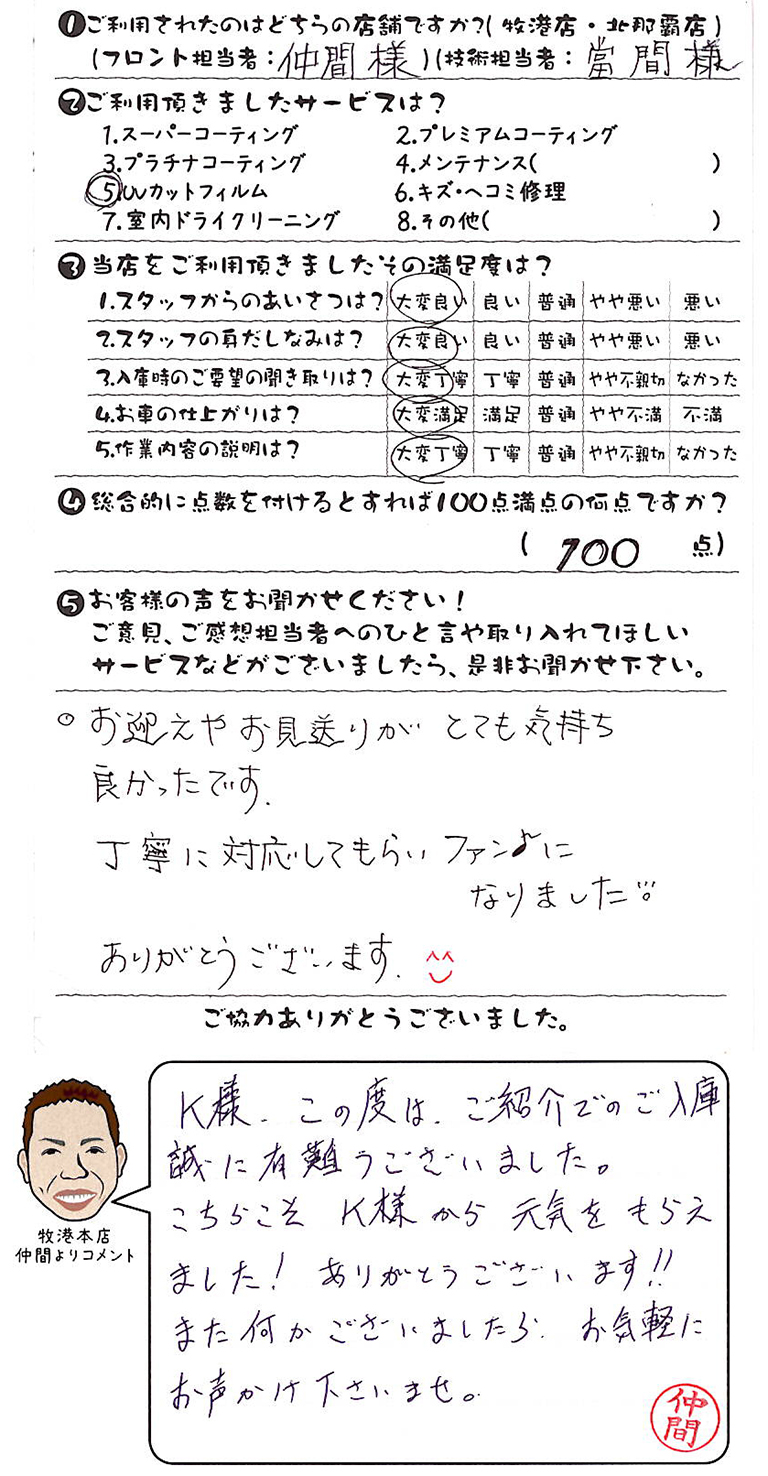 ❶ご利用されたのはどちらの店舗ですか?(牧港店・北那覇店)
(フロント担当者:仲間様)(技術担当者:當間様
❷ご利用頂きましたサービスは?
1.スーパーコーティング 2.プレミアムコーティング
3.プラチナコーティング 4.メンテナンス( )
5.UVカットフィルム 6.キズ・ヘコミ修理
7.室内ドライクリーニング 8.その他( )
❸当店をご利用頂きましたその満足度は?
1.スタッフからのあいさつは? 大変良い 良い 普通 やや悪い 悪い
2.スタッフの身だしなみは? 大変良い 良い 普通 やや悪い 悪い
3.入庫時のご要望の聞き取りは? 大変丁寧 丁寧 普通 やや不親切 なかった
4.お車の仕上がりは? 大変満足 満足 普通 やや不満 不満
5.作業内容の説明は? 大変丁寧 丁寧 普通 やや不親切 なかった
❹総合的に点数を付けるとすれば100点満点の何点ですか?
( 100 点)
❺お客様の声をお聞かせください!
ご意見、ご感想担当者へのひと言や取り入れてほしい
サービスなどがございましたら、是非お聞かせ下さい。
○ お迎えやお見送りが とても気持ち
良かったです.
丁寧に対応してもらい ファン♪に
なりました
ありがとうございます. ^^
ご協力ありがとうございました。
K様. この度は. ご紹介でのご入庫
誠に有難うございました。
こちらこそ K様から 元気を もらえ
ました! ありがとうございます!!
また何かございましたら. お気軽に
お声かけ下さいませ。
牧港本店
仲間よりコメント
仲間